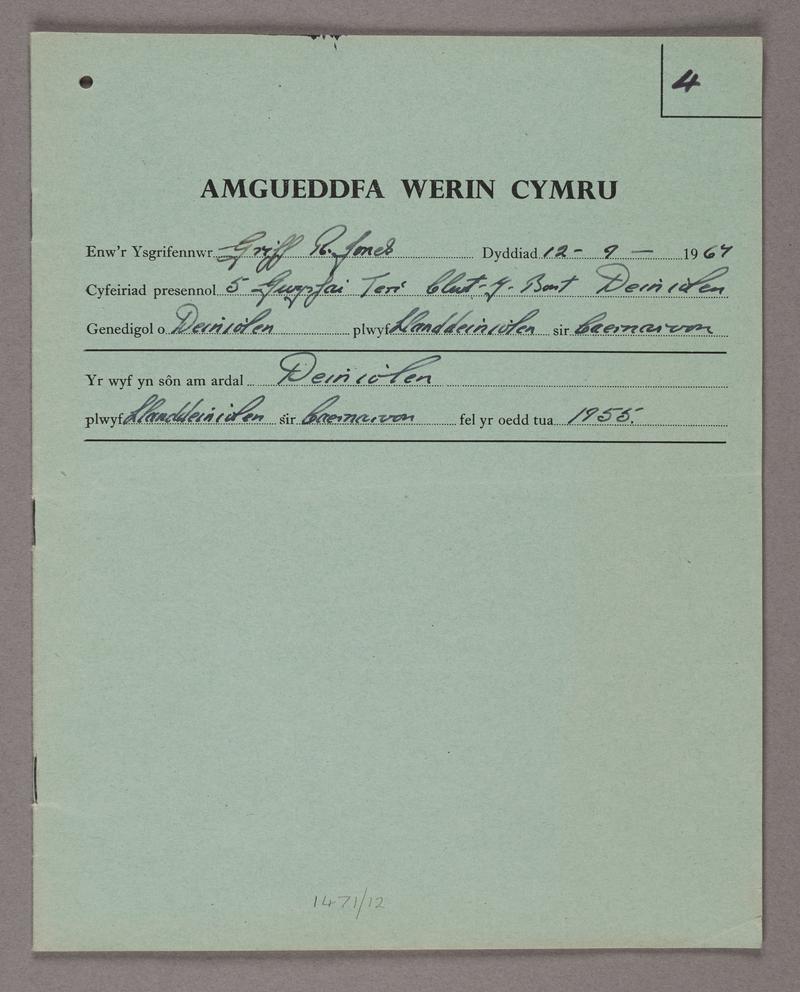 4
AMGUEDDFA WERIN CYMRU
Enw'r Ysgrifennwr Griff R. Jones Dyddiad 12 - 9 - 1967
Cyfeiriad presennol 5 Teri Clwt-y-Bont Deiniolen
Genedigol o Deiniolen plwyf Llanddeiniolen sir Caernarvon
Yr wyf yn sôn am ardal Deiniolen
plwyf Llanddeiniolen sir Caernarvon fel yr oedd tua 1955.
1471/12